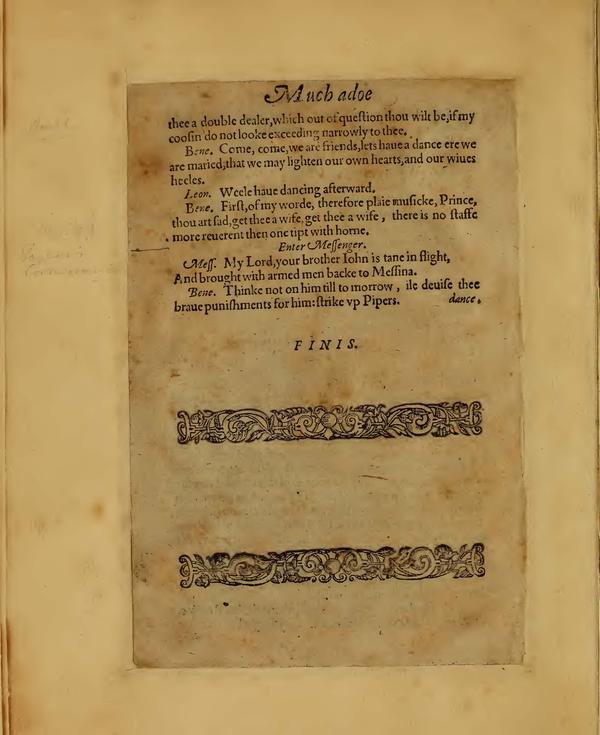 Much adoe
thee a double dealer,which out of queſtion thou wilt be,if my
cooſin do not looke exceeding narrowly to thee.
Bene. Come, come,we are friends,lets haue a dance ere we
are maried,that we may lighten our own hearts,and our wiues
heeles.
Leon. Weele haue dancing afterward.
Bene. Firſt,of my worde, therefore plaie muſicke, Prince,
thou art ſad,get thee a wife,get thee a wife , there is no ſtaffe
more reuerent then one tipt with horne.
Enter Meſſenger.
Meſſ. My Lord,your brother Iohn is tane in flight,
And brought with armed men backe to Meſſina.
Bene. Thinke not on him till to morrow , ile deuiſe thee
braue puniſhments for him:ſtrike vp Pipers. dance.
FINIS.